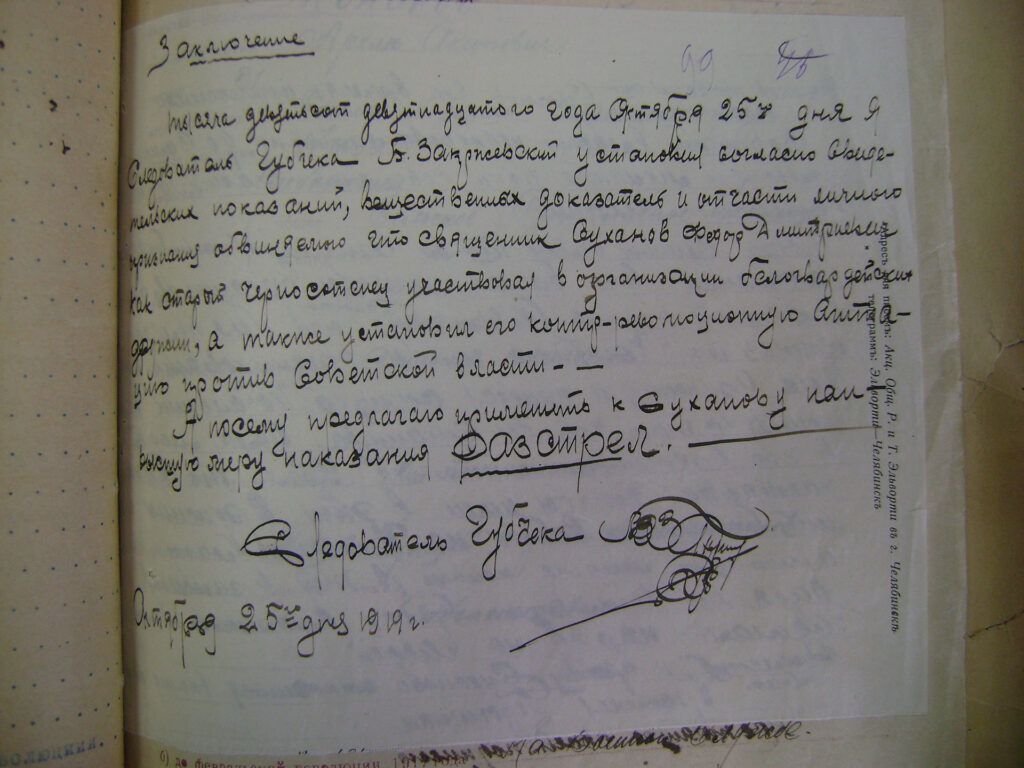 Заключение
99 46
тысяча девятьсот девятнадцатого года Октября 25го дня Я
Следователь Губчека Б. Закржевский установил согласно Свиде-
тельских показаний, вещественных доказатель и отчасти личного
признания обвиняемого что священник Суханов Федор Дмитриевич
как старый черносотенец участвовал в организации белогвардейских
дружин, а также установил его контр-революционную Агита-
цию против Советской власти - —
А посему предлагаю применить к Суханову наи-
высшую меру наказания Расстрел.
Следователь Губчека
Октября 25го дня 1919 г.
Адресъ для Акц. Общ. Р. и Т. Эльворти въ г. Челябинскъ
телеграммъ: Эльворти—Челябинскъ
6) до февральской революции